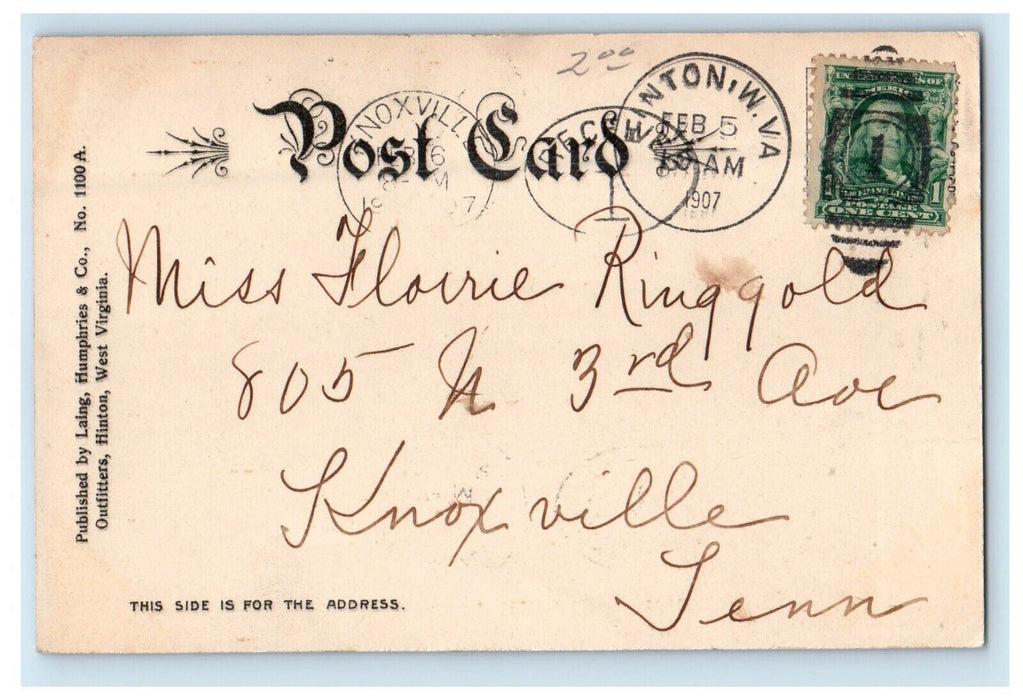 2.00
Post Card
KNOXVILL
6
7
REC'D
1
HINTON, W. VA
FEB 5
AM
1907
UNITED STATES OF
AMERICA
FRANKLIN
1 POSTAGE 1
ONE CENT
Published by Laing, Humphries & Co., No. 1100 A.
Outfitters, Hinton, West Virginia.
Miss Flowrie Ringgold
805 N 3rd Ave
Knoxville
Tenn
THIS SIDE IS FOR THE ADDRESS.